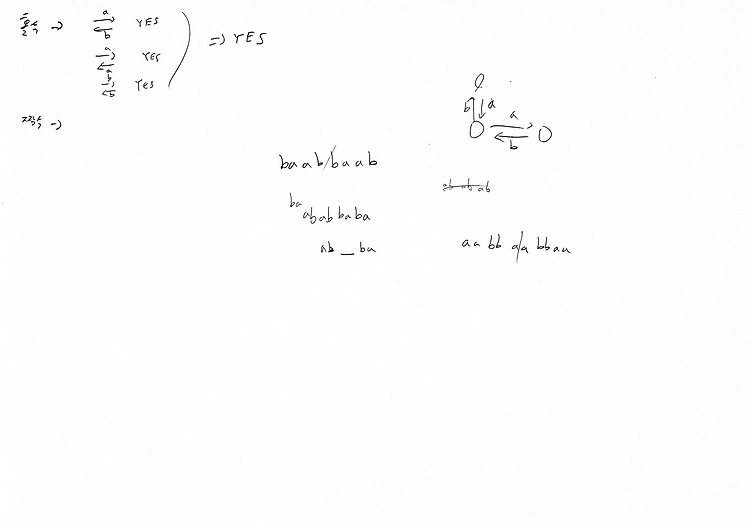 a YES
b
a YES => YES
a
b YES
b
b a
a
b
baab/baab
ab ab ab
ba
ababbaba
ab _ ba
aabba/abbaa